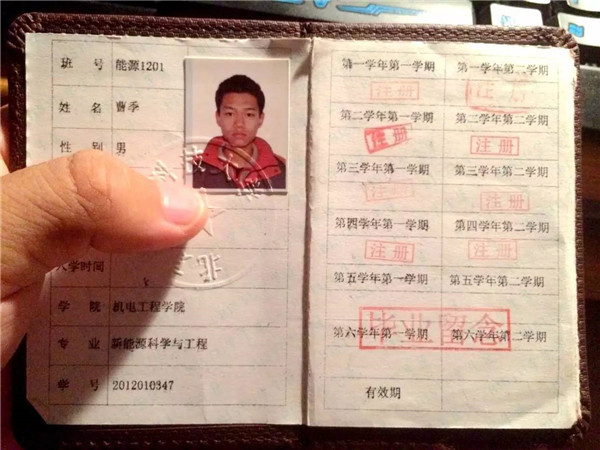 班 号 能源1201
姓 名 曹季
性 别 男
科技大
北
入学时间
学 院 机电工程学院
专 业 新能源科学与工程
学 号 2012010347
第一学年第一学期 第一学年第二学期
注册 注册
第二学年第一学期 第二学年第二学期
注册 注册
第三学年第一学期 第三学年第二学期
注册 注册
第四学年第一学期 第四学年第二学期
注册 注册
第五学年第一学期 第五学年第二学期
毕业留念
第六学年第一学期 第六学年第二学期
有效期